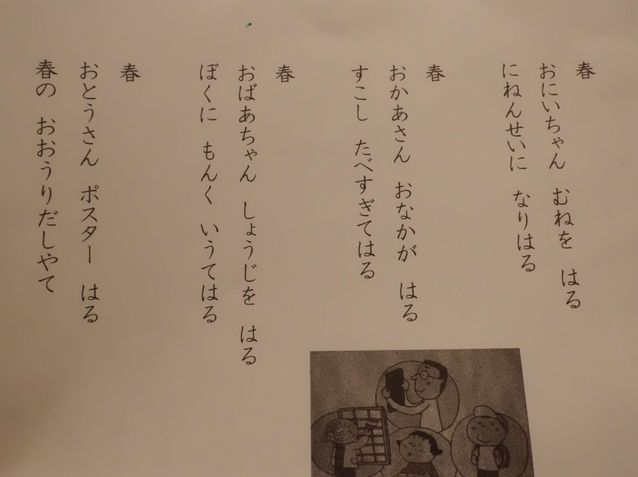 春
おにいちゃん　むねを　はる
にねんせいに　なりはる
春
おかあさん　おなかが　はる
すこし　たべすぎてはる
春
おばあちゃん　しょうじを　はる
ぼくに　もんく　いうてはる
春
おとうさん　ポスター　はる
春の　おおうりだしやて